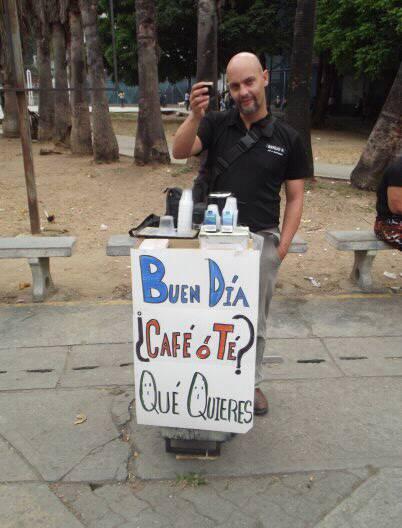 BUEN DÍA
¿CAFÉ Ó TÉ?
QUÉ QUIERES